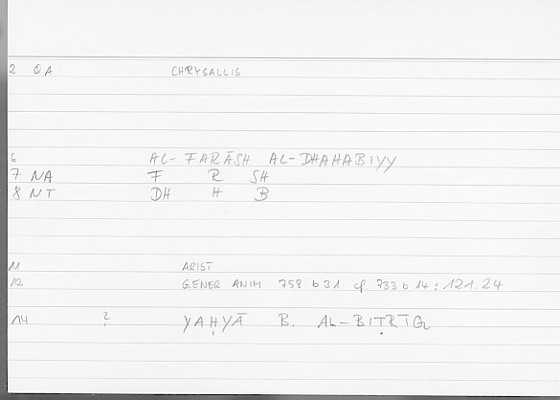 2 QA CHRYSALLIS
6 AL-FARĀSH AL-DHAHABIYY
7 NA F R SH
8 NT DH H B
11 ARIST
12 GENER ANIM 758 b 31 cf. 733 b 14 : 121.24
14 ? YAḤYĀ B. AL-BIṬRĪQ